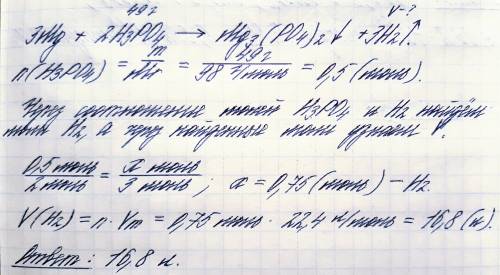 49 г V-?
3Mg + 2H₃PO₄ → Mg₃(PO₄)₂↓ + 3H₂↑.
n(H₃PO₄) = m/Mr = 49г/98 г/моль = 0,5 (моль).
Через соотношение молей H₃PO₄ и H₂ найдём
моли H₂, а через найденные моли узнаем V.
0,5 моль/2 моль = x моль/3 моль; x = 0,75 (моль) – H₂.
V(H₂) = n · Vm = 0,75 моль · 22,4 л/моль = 16,8 (л).
Ответ: 16,8 л.